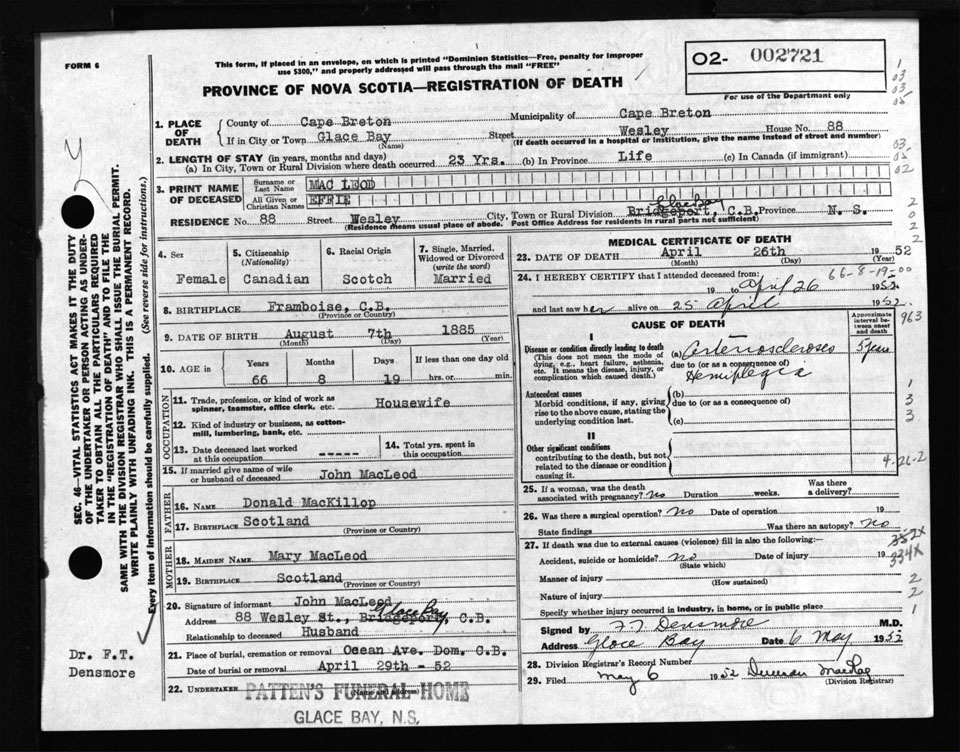 FORM 6
This form, if placed in an envelope, on which is printed "Dominion Statistics—Free, penalty for improper
use $300," and properly addressed will pass through the mail "FREE"
02- 002721
For use of the Department only
PROVINCE OF NOVA SCOTIA—REGISTRATION OF DEATH
1. PLACE OF DEATH
County of Cape Breton Municipality of Cape Breton
If in City or Town Glace Bay Street Wesley House No. 88
(Name) (If death occurred in a hospital or institution, give the name instead of street and number)
2. LENGTH OF STAY (in years, months and days)
(a) In City, Town or Rural Division where death occurred 23 Yrs. (b) In Province Life (c) In Canada (if immigrant)
3. PRINT NAME OF DECEASED
Surname or Last Name MAC LEOD
All Given or Christian Names EFFIE
RESIDENCE No. 88 Street Wesley City, Town or Rural Division Bridgeport, C.B. Glace Bay Province N. S.
(Residence means usual place of abode. Post Office Address for residents in rural parts not sufficient)
4. Sex Female
5. Citizenship (Nationality) Canadian
6. Racial Origin Scotch
7. Single, Married, Widowed or Divorced (write the word) Married
8. BIRTHPLACE Framboise, C.B.
(Province or Country)
9. DATE OF BIRTH August 7th 1885
(Month) (Day) (Year)
10. AGE in Years 66 Months 8 Days 19 If less than one day old hrs. or min.
OCCUPATION
11. Trade, profession, or kind of work as spinner, teamster, office clerk, etc. Housewife
12. Kind of industry or business, as cotton-mill, lumbering, bank, etc.
13. Date deceased last worked at this occupation -----
14. Total yrs. spent in this occupation
15. If married give name of wife or husband of deceased John MacLeod
FATHER
16. NAME Donald MacKillop
17. BIRTHPLACE Scotland
(Province or Country)
MOTHER
18. MAIDEN NAME Mary MacLeod
19. BIRTHPLACE Scotland
(Province or Country)
20. Signature of informant John MacLeod
Address 88 Wesley St., Bridgeport, C.B. Glace Bay
Relationship to deceased Husband
21. Place of burial, cremation or removal Ocean Ave. Dom. C.B.
Date of burial or removal April 29th - 52
22. UNDERTAKER PATTEN'S FUNERAL HOME
(Name and address)
GLACE BAY, N.S.
MEDICAL CERTIFICATE OF DEATH
23. DATE OF DEATH April 26th 1952
(Month) (Day) (Year)
24. I HEREBY CERTIFY that I attended deceased from:
66-8-19-00
19 to April 26 1952
and last saw her alive on 25 April 1952
CAUSE OF DEATH
Approximate interval between onset and death
I
Disease or condition directly leading to death
(This does not mean the mode of dying, e.g., heart failure, asthenia, etc. It means the disease, injury, or complication which caused death.)
(a) Arteriosclerosis 5 years
due to (or as a consequence of)
Hemiplegia
Antecedent causes
Morbid conditions, if any, giving rise to the above cause, stating the underlying condition last.
(b)
due to (or as a consequence of)
(c)
II
Other significant conditions
contributing to the death, but not related to the disease or condition causing it.
4-26-2
25. If a woman, was the death associated with pregnancy? No Duration weeks. Was there a delivery?
26. Was there a surgical operation? No Date of operation 19
State findings Was there an autopsy? No
27. If death was due to external causes (violence) fill in also the following:—
Accident, suicide or homicide? No Date of injury 19
(State which)
Manner of injury
(How sustained)
Nature of injury
Specify whether injury occurred in industry, in home, or in public place
Signed by F. T. Densmore M.D.
Address Glace Bay Date 6 May 1952
28. Division Registrar's Record Number
29. Filed May 6 1952 Duncan
(Division Registrar)
SEC. 46—VITAL STATISTICS ACT MAKES IT THE DUTY
OF THE UNDERTAKER OR PERSON ACTING AS UNDER-
TAKER TO OBTAIN ALL THE PARTICULARS REQUIRED
IN THE "REGISTRATION OF DEATH" AND TO FILE THE
SAME WITH THE DIVISION REGISTRAR WHO SHALL ISSUE THE BURIAL PERMIT.
WRITE PLAINLY WITH UNFADING INK. THIS IS A PERMANENT RECORD.
Every item of information should be carefully supplied. (See reverse side for instructions.)
Dr. F.T.
Densmore
1
03
03
03
02
2
0
2
2
963
1
3
3
334X
2
2
1